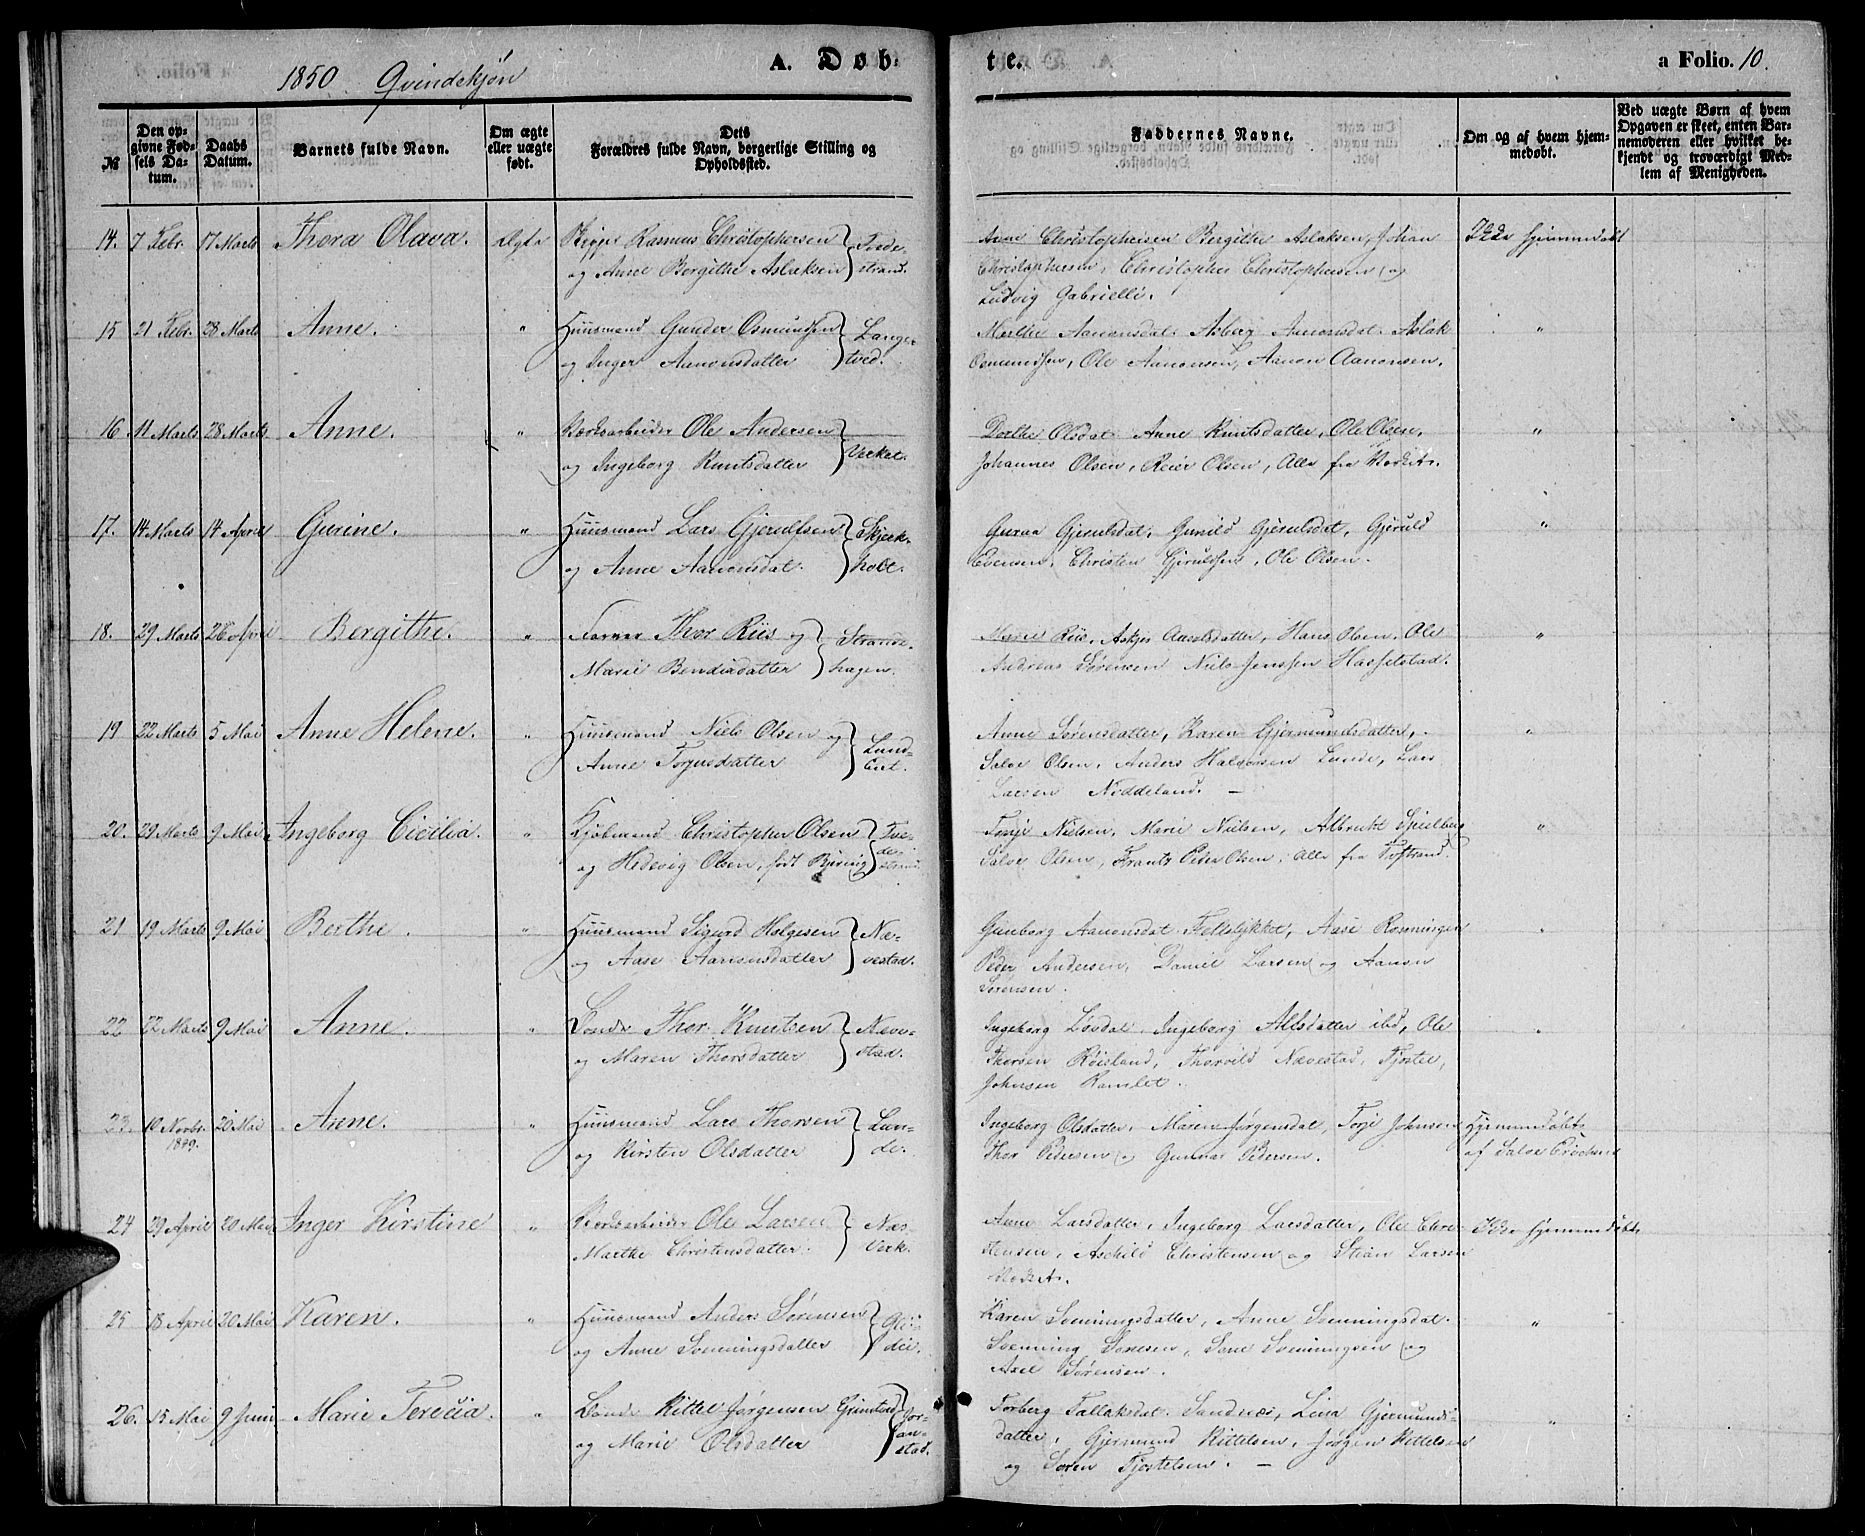 1850 Qvindekjøn
A. Døb
te.
a Folio. 10.
№
Den opgivne Fødsels Datum.
Daabs Datum.
Barnets fulde Navn.
Om ægte eller uægte født.
Dets Forældres fulde Navn, borgerlige Stilling og Opholdssted.
Faddernes Navne.
Om og af hvem hjemmedøbt.
Ved uægte Børn af hvem Opgaven er skeet, enten Barnemoderen eller hvilket bekjendt og troværdigt Medlem af Menigheden.
14. 7 Febr. 17 Marts Thora Olava. Ægte Rasmus Christophersen
og Anne Bergithe Aslaksen } Tvedestrand.
Anne Christophersen Bergitte Aslaksen, Johan
Christophersen, Christopher Christophersen og
Ludvig Gabrielli.
Ikke hjemmedøbt
15 21 Febr. 28 Marts Anne. " Huusmand Gunder Osmundsen
og Inger Aanonsdatter } Langetved.
Merthe Aanonsdat. Asberg Aanonsdat. Aslak
Osmundsen, Ole Aanonsen, Aanon Aanonsen.
"
16 11 Marts 28 Marts Anne. " Værksarbeider Ole Andersen
og Ingeborg Knutsdatter } Verket.
Dorthe Olsdat. Anne Knutsdatter, Ole Olsen,
Johannes Olsen, Reier Olsen, Alle fra Værket.
"
17. 14 Marts 14 April Gurine. " Huusmand Lars Gjerulfsen
og Anne Aanonsdat. } Skjerkholt.
Guraa Gjerulsdat, Gunild Gjerulsdat, Gjeruld
Evensen, Christen Gjeruldsen, Ole Olsen.
"
18. 29 Marts 26 April Bergithe. " Thor Riis og
Marie Bendixdatter } Strandehagen.
Marie Riis, Askjer Axelsdatter, Hans Olsen, Ole
Andreas Sørensen Niels Jenssen Hasselstad.
"
19 22 Marts 5 Mai Anne Helene. " Huusmand Niels Olsen og
Anne Torjusdatter }
Anne Sørensdatter, Karen Gjermundsdatter,
Salve Olsen, Anders Halvorsen Lunde, Lars
Larsen Noddeland. —
"
20. 29 Marts 9 Mai Ingeborg Cicilia. " Kjøbmand Christopher Olsen
og Hedevig Olsen, født Bjering } Tvedestrand.
Terje Nielsen, Marie Nielsen, Albrukt Spielberg
Salve Olsen, Frants Peder Olsen, Alle fra Tvstrand.
"
21 19 Marts 9 Mai Berthe. " Huusmand Sigurd Helgesen
og Aase Aanonsdatter } Nævestad.
Gunborg Aanonsdat. Fellelykket, Aase Rønningen
Peder Andersen, Daniel Larsen og Aanon
Sørensen.
"
22 22 Marts 9 Mai Anne. " Bonde Thor Knutsen
og Maren Thorsdatter } Nævestad.
Ingeborg Løvdal Ingeborg Alfsdatter ibd, Ole
Thorsen Røisland, Thorvild Nævestad, Tjostel
Johnsen Hamlet.
"
23. 10 Novbr. 1849. 20 Mai Anne. " Huusmand Lars Thorsen
og Kirsten Olsdatter } Lunde.
Ingeborg Olsdatter, Maren Jørgensdal, Torje Johnsen
Thor Pedersen og Gunnar Pedersen.
Hjemmedøbt
af Salve
24 29 April 20 Mai Inger Kirstine " Værksarbeider Ole Larsen
Marthe Christensdatter } Næs Verk.
Anne Larsdatter, Ingeborg Larsdatter, Ole Christensen, Aschild Christensen og Stian Larsen
Værket.
Ikke hjemmedøbt
25 18 April 20 Mai Karen. " Huusmand Anders Sørensen
og Anne Svenningsdatter }
Karen Svenningsdatter, Anne Svenningsdal.
Svenning Sørnsen, Svenningsen og
Axel Sørensen.
"
26. 15 Mai 9 Juni Marie Terecia. " Bonde Kittel Jørgensen Grimstad
og Marie Olsdatter }
Torberg Tallaksdat. Sandnæs, Lina Gjermunds-
datter, Gjermund Kittelsen, Jørgen Kittelsen
og Søren Tjostelsen. —
"